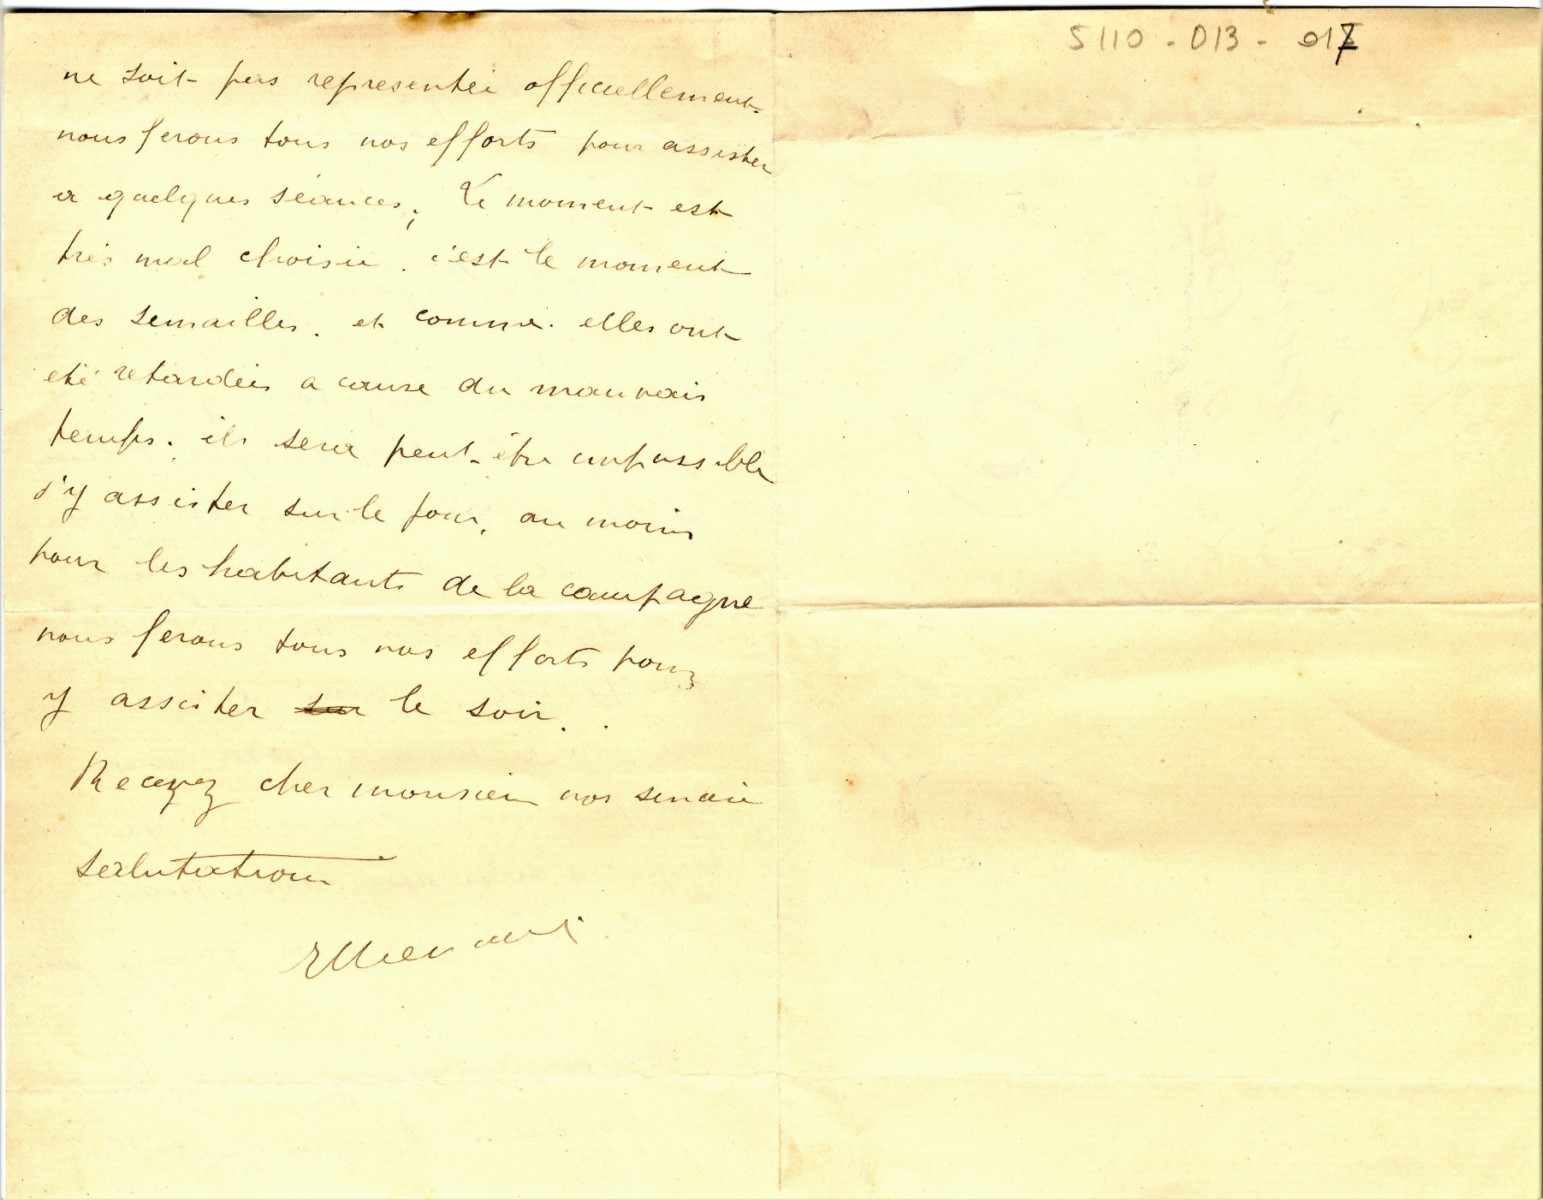 ne soit pas representée officiellement
nous ferons tous nos efforts pour assister
a quelques séances; Le moment est
très mal choisie. c'est le moment
des semailles. et comme. elles ont
été retardées a cause du mauvais
temps. ils sera peut-être impossible
d'y assister sur le jour, au moins
pour les habitants de la campagne
nous ferons tous nos efforts pour
y assister sur le soir.
Recevez cher monsieur nos
salutation
5110 - 013 - 017